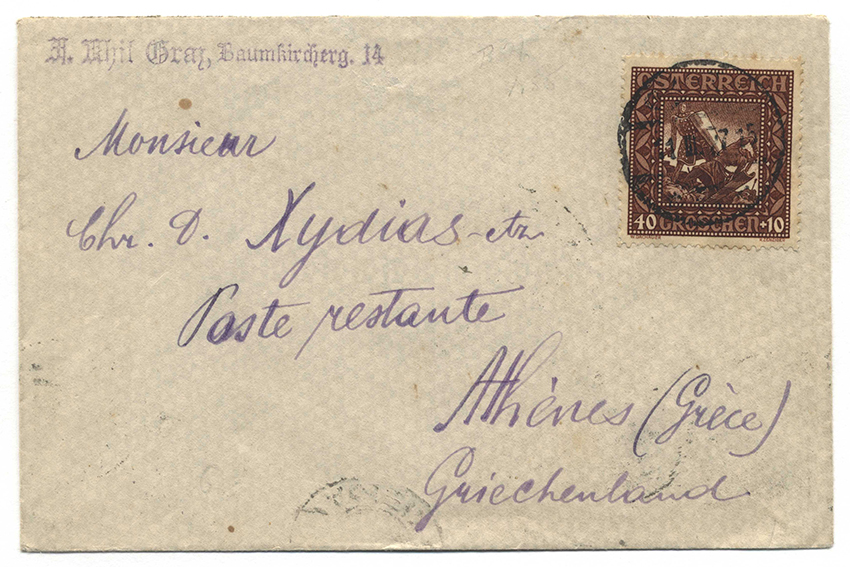 A. Uhil Graz, Baumkircherg. 14
ÖSTERREICH
40 GROSCHEN +10
Monsieur
Chr. D. Xydias
Poste restante
Athènes (Grèce)
Griechenland